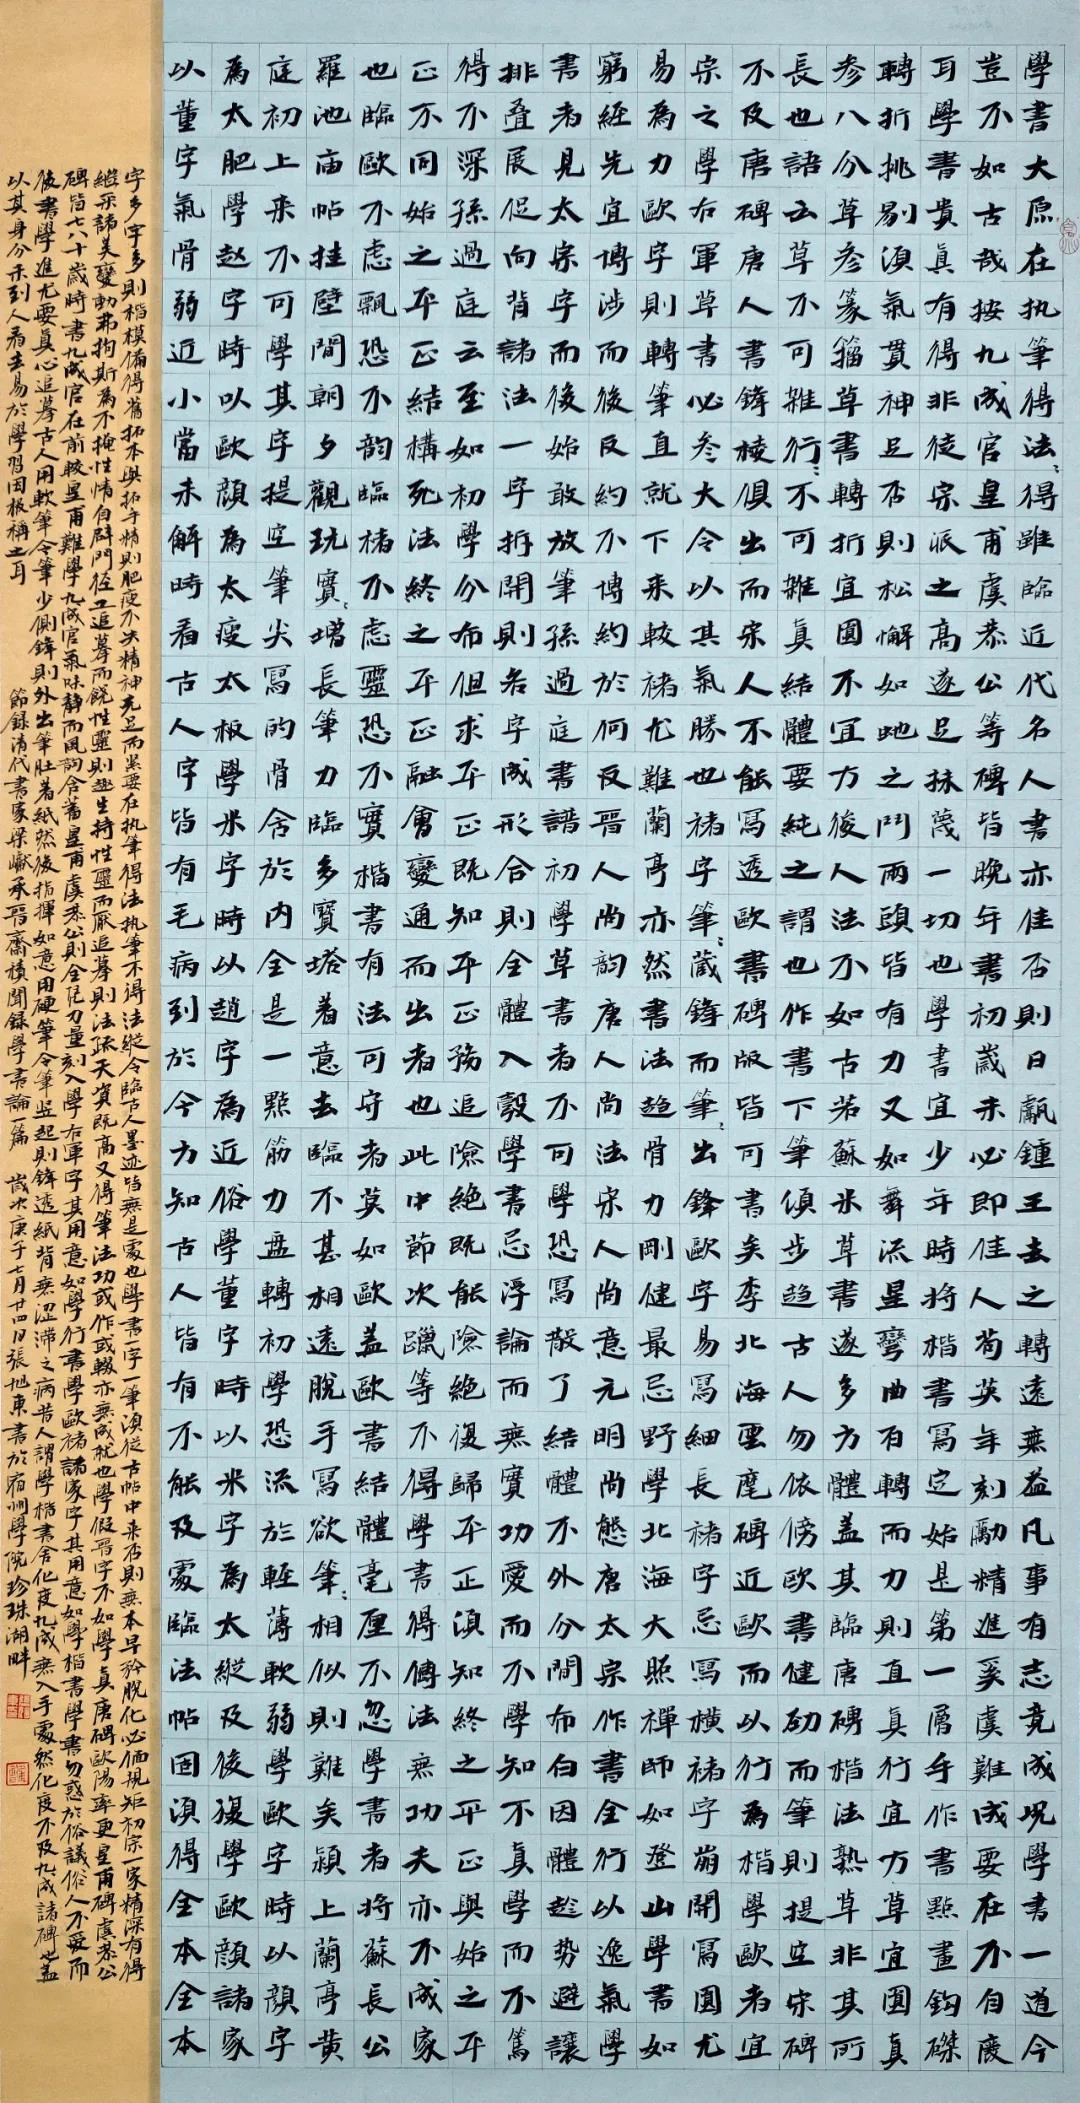 學書大原在执筆得法得雖臨近代名人書亦佳否則日觀鍾王去之轉遠無益凡事有志竟成況學書一道今
豈不如古哉按九成宮皇甫虞恭公等碑皆晚年書初歲未必即佳人苟英年刻勵精進奚虞難成要在不自廢
耳學書貴真有得非徒宗派之高遂足抹蔑一切也學書宜少年時將楷書寫定始是第一層手作書點畫鈎磔
轉折挑剔須氣貫神足否則松懈如虵之鬥兩頭皆有力又如舞流星彎曲百轉而力則直真行宜方草宜圓真
參八分草參篆籀草書轉折宜圓不宜方後人法不如古若蘇米草書遂多方體蓋其臨唐碑楷法熟草非其所
長也語云草不可雜行;不可雜真結體要純之謂也作書下筆傾步趋古人勿依傍歐書健劲而筆則提空宋碑
不及唐碑唐人書鋒棱俱出而宋人不能寫透歐書碑版皆可書矣李北海雲麾碑近歐而以行為楷學歐者宜
宗之學右軍草書必叅大令以其氣勝也褚字筆;藏鋒而筆;出鋒歐字易寫細長褚字忌寫橫褚字崩開寫圓尤
易為力歐字則轉筆直就下来較褚尤難蘭亭亦然書法趋骨力剛健最忌野學北海大照禪師如登山學書如
窮經先宜博涉而後反約不博約於何反晉人尚韵唐人尚法宋人尚意元明尚態唐太宗作書全行以逸氣學
書者見太宗字而後始敢放筆孫過庭書譜初學草書者不可學恐寫散了結體不外分間布白因體趁势避讓
排叠展促向背諸法一字拆開則各字成形合則全體入彀學書忌浮論而無實功愛而不學知不真學而不篤
得不深孫過庭云至如初學分布但求平正既知平正務追險絕既能險絕復歸平正須知終之平正與始之平
正不同始之平正結構死法終之平正融會變通而出者也此中節次躐等不得學書得傳法無功夫亦不成家
也臨歐不慮飄恐不韵臨褚不慮靈恐不實楷書有法可守者莫如歐蓋歐書結體毫厘不忽學書者將蘇長公
羅池廟帖挂壁間朝夕觀玩實;增長筆力臨多寶塔着意去臨不甚相遠脫手寫欲筆;相似則難矣潁上蘭亭黄
庭初上来不可學其字提空筆尖寫的骨含於內全是一點筋力盘轉初學恐流於輕薄軟弱學歐字時以顔字
為太肥學赵字時以歐顔為太瘦太板學米字時以趙字為近俗學董字時以米字為太縱及後復學歐顔諸家
以董字氣骨弱近小當未解時看古人字皆有毛病到於今方知古人皆有不能及處臨法帖固須得全本全本
字多字多則楷模備得舊拓本與拓手精則肥瘦不失精神充足而要在执筆得法执筆不得法縱令臨古人墨迹皆無是處也學書一字一筆須從古帖中来否則無本早矜脫化必偭規矩初宗一家精深有得
繼采諸美變動弗拘斯為不掩性情自辟門径工追摹而饒性靈則趣生持性靈而厭追摹則法疏天資既高又得筆法功或作或輟亦無成就也學假晉字不如學真唐碑歐陽率更皇甫碑虞恭公
碑皆七八十歲時書九成宮在前較皇甫難學九成宮氣味静而風韵含蓄皇甫虞恭公則全凭力量刻入學右軍字其用意如學行書學歐褚諸家字其用意如學楷書學書勿惑於俗議俗人不愛而
後書學進尤要真心追摹古人用軟筆令筆少側鋒則外出筆肚着紙然後指揮如意用硬筆令筆竖起則鋒透紙背無涩滯之病昔人謂學楷書舍化度九成無入手處然化度不及九成諸碑也蓋
以其身分未到人看去易於學習因极稱之耳 節錄清代書家梁巘承晉齋積聞錄學書論一篇 歲次庚子七月廿四日張旭東書於宿州學院珍珠湖畔